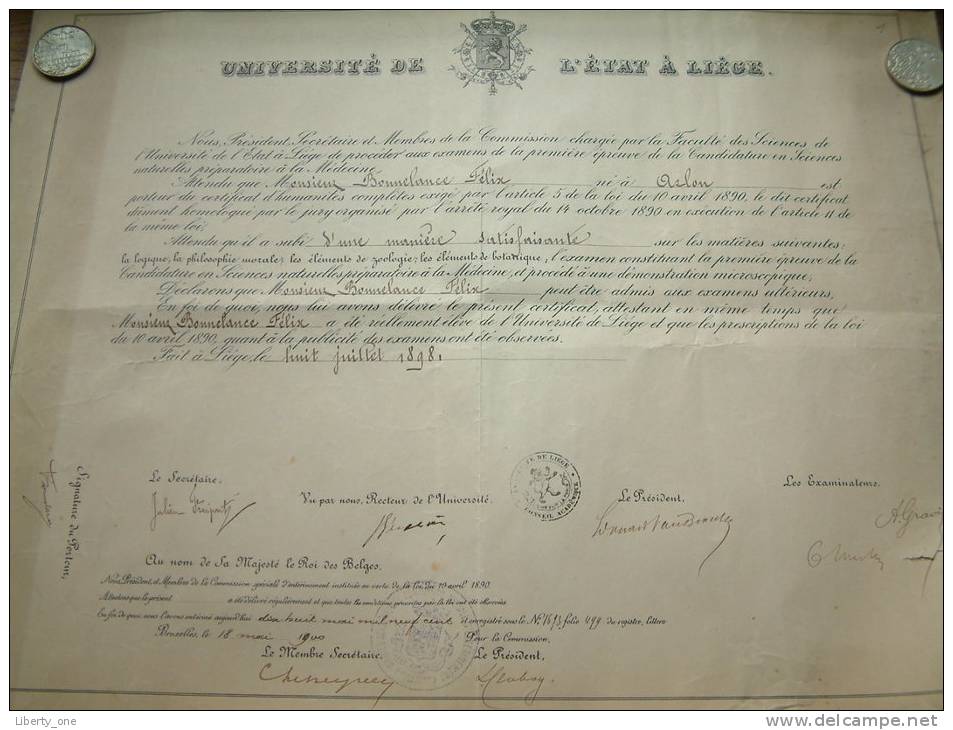 UNIVERSITÉ DE L'ÉTAT À LIÉGE.
Nous, Président, Secrétaire et Membres de la Commission chargée par la Faculté des Sciences de
l'Université de l'État à Liége de procéder aux examens de la première épreuve de la Candidature en Sciences
naturelles préparatoire à la Médecine,
Attendu que Monsieur Bonnelance Félix né à Arlon est
porteur du certificat d'humanités complètes exigé par l'article 5 de la loi du 10 avril 1890, le dit certificat
dûment homologué par le jury organisé par l'arrêté royal du 14 octobre 1890 en exécution de l'article 11 de
la même loi;
Attendu qu'il a subi d'une manière satisfaisante sur les matières suivantes:
la logique, la philosophie morale; les éléments de zoologie; les éléments de botanique; l'examen constituant la première épreuve de la
Candidature en Sciences naturelles préparatoire à la Médecine, et procédé à une démonstration microscopique;
Déclarons que Monsieur Bonnelance Félix peut être admis aux examens ultérieurs,
En foi de quoi, nous lui avons délivré le présent certificat, attestant en même temps que
Monsieur Bonnelance Félix a été réellement élève de l'Université de Liége et que les prescriptions de la loi
du 10 avril 1890, quant à la publicité des examens ont été observées.
Fait à Liége, le huit juillet 1898.
Signature du Porteur,
Le Secrétaire,
Julien Fraipont
Vu par nous, Recteur de l'Université.
DE LIÉGE
CONSEIL ACADÉMIQUE
Le Président,
Les Examinateurs.
A. Gravis
Au nom de Sa Majesté le Roi des Belges,
Nous, Président, et Membres de la Commission spéciale d'entérinement instituée en vertu de la loi du 10 avril 1890.
Attendu que le présent a été délivré régulièrement et que toutes les conditions prescrites par la loi ont été observées
En foi de quoi, nous l'avons entériné aujourd'hui dix huit mai mil neuf cent et enregistré sous le N° folio 499 du registre, lettre
Bruxelles, le 18 mai 1900
Pour la Commission,
Le Membre Secrétaire,
Le Président,
Liberty_one
www.delcampe.net